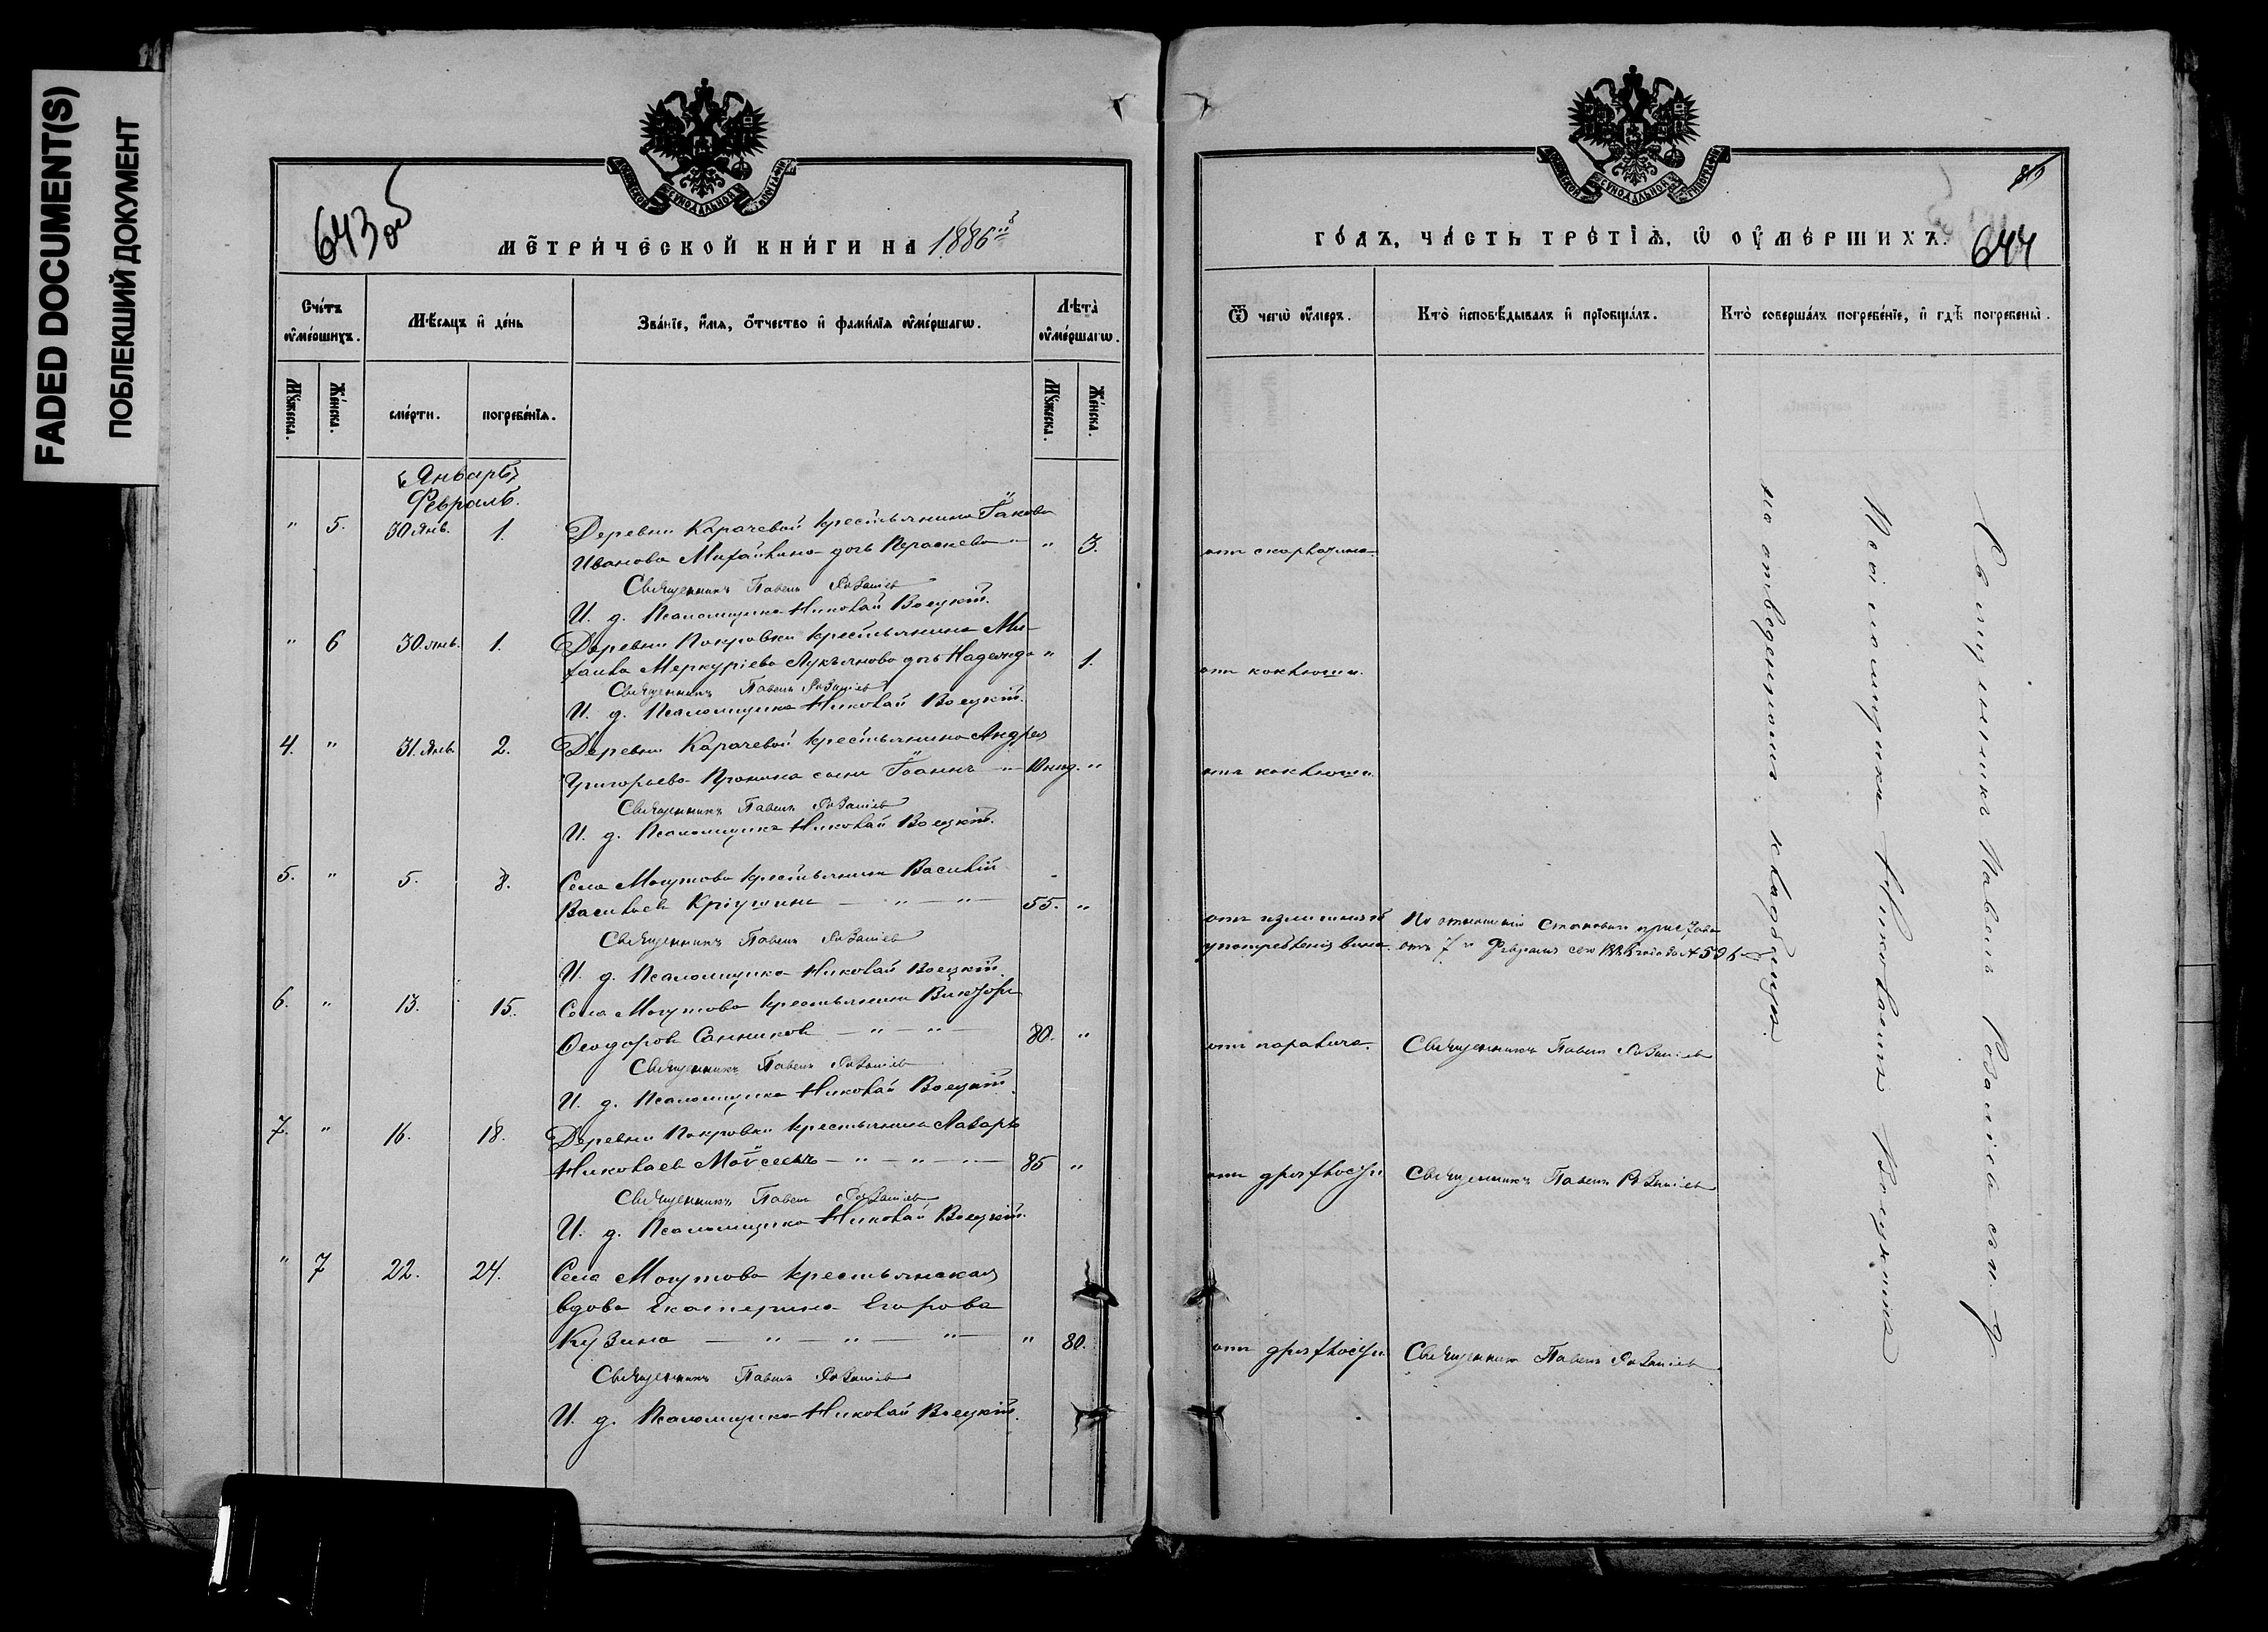 FADED DOCUMENT(S)
ПОБЛЕКШИЙ ДОКУМЕНТ
643 об
МЕТРИЧЕСКОЙ КНИГИ НА 1886й
Счетъ оумершихъ.
Мѣсяцъ и день
Званіе, имя, отчество и фамилія оумершагω.
Лѣта оумершагω.
Мужеска.
Женска.
смерти.
погребенія.
Мужеска.
Женска.
Январь
Февраль.
" 5. 30 Янв. 1. Деревни Карачевой крестьянина Іакова
Иванова Михайлина дочь Параскева " 3.
Священникъ Павелъ Розаліевъ
И. д. Псаломщика Николай Воецкій.
" 6 30 янв. 1. Деревни Покровки крестьянина Ми-
хаила Меркуріева Лукьянова дочь Надежда " 1.
Священникъ Павелъ Розаліевъ
И. д. Псаломщика Николай Воецкій.
4. " 31. Янв. 2. Деревни Карачевой крестьянина Андрея
Григорьева Пронина сынъ Іоаннъ "
Священникъ Павелъ Розаліевъ
И. д. Псаломщика Николай Воецкій.
5. " 5. 8. Села Могутова крестьянинъ Василій
Васильевъ Кріушинъ — " — " — 55. "
Священникъ Павелъ Розаліевъ
И. д. Псаломщика Николай Воецкій.
6. " 13. 15. Села Могутова крестьянинъ Викторъ
Ѳеодоровъ Санниковъ — " — " — 80. "
Священникъ Павелъ Розаліевъ
И. д. Псаломщика Николай Воецкій.
7. " 16. 18. Деревни Покровки крестьянинъ Лазарь
Николаевъ Моѵсеевъ — " — " — " — 85 "
Священникъ Павелъ Розаліевъ
И. д. Псаломщика Николай Воецкій.
" 7 22. 24. Села Могутова крестьянская
вдова Екатерина Егорова
Кузина — " — " — " — " 80.
Священникъ Павелъ Розаліевъ
И. д. Псаломщика Николай Воецкій.
ГОДЪ, ЧАСТЬ ТРЕТІЯ, Ѡ ОУМЕРШИХЪ.
644
Ѿ чегω оумеръ.
Кто исповѣдывалъ и пріобщалъ.
Кто совершалъ погребеніе, и гдѣ погребены.
отъ скарлатины.
отъ коклюша.
отъ коклюша.
отъ излишняго
употребленія вина.
По отношенію Становаго пристава
отъ 7го Февраля сего 1886 года за № 596
отъ паралича. Священникъ Павелъ Розаліевъ
отъ дряхлости Священникъ Павелъ Розаліевъ
отъ дряхлости. Священникъ Павелъ Розаліевъ
Священникъ Павелъ Розаліевъ съ и. д.
Псаломщика Николаемъ Воецкимъ
на отведенномъ кладбищѣ.